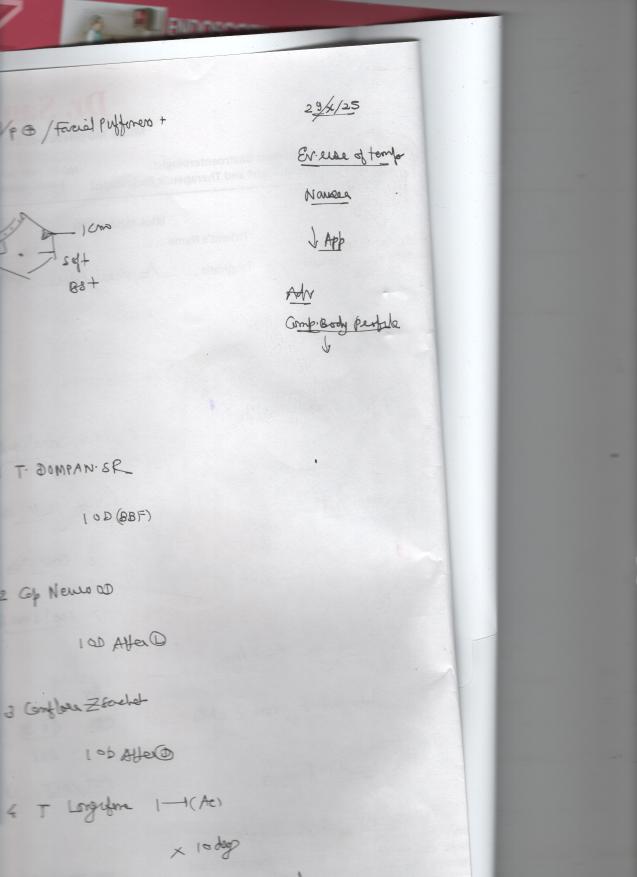 29/x/25
/P ⊕ / Facial Puffiness +
Ev. use of temp
Nausea
↓ App
1 cm
soft
BS+
Adv
Comp. Body Profile
↓
T. DOMPAN. SR
1 OD (BBF)
2 Cap Neuro OD
1 OD After Ⓛ
3 Z Sachet
1 OD After
4 T 1 (Ac)
x 10 days